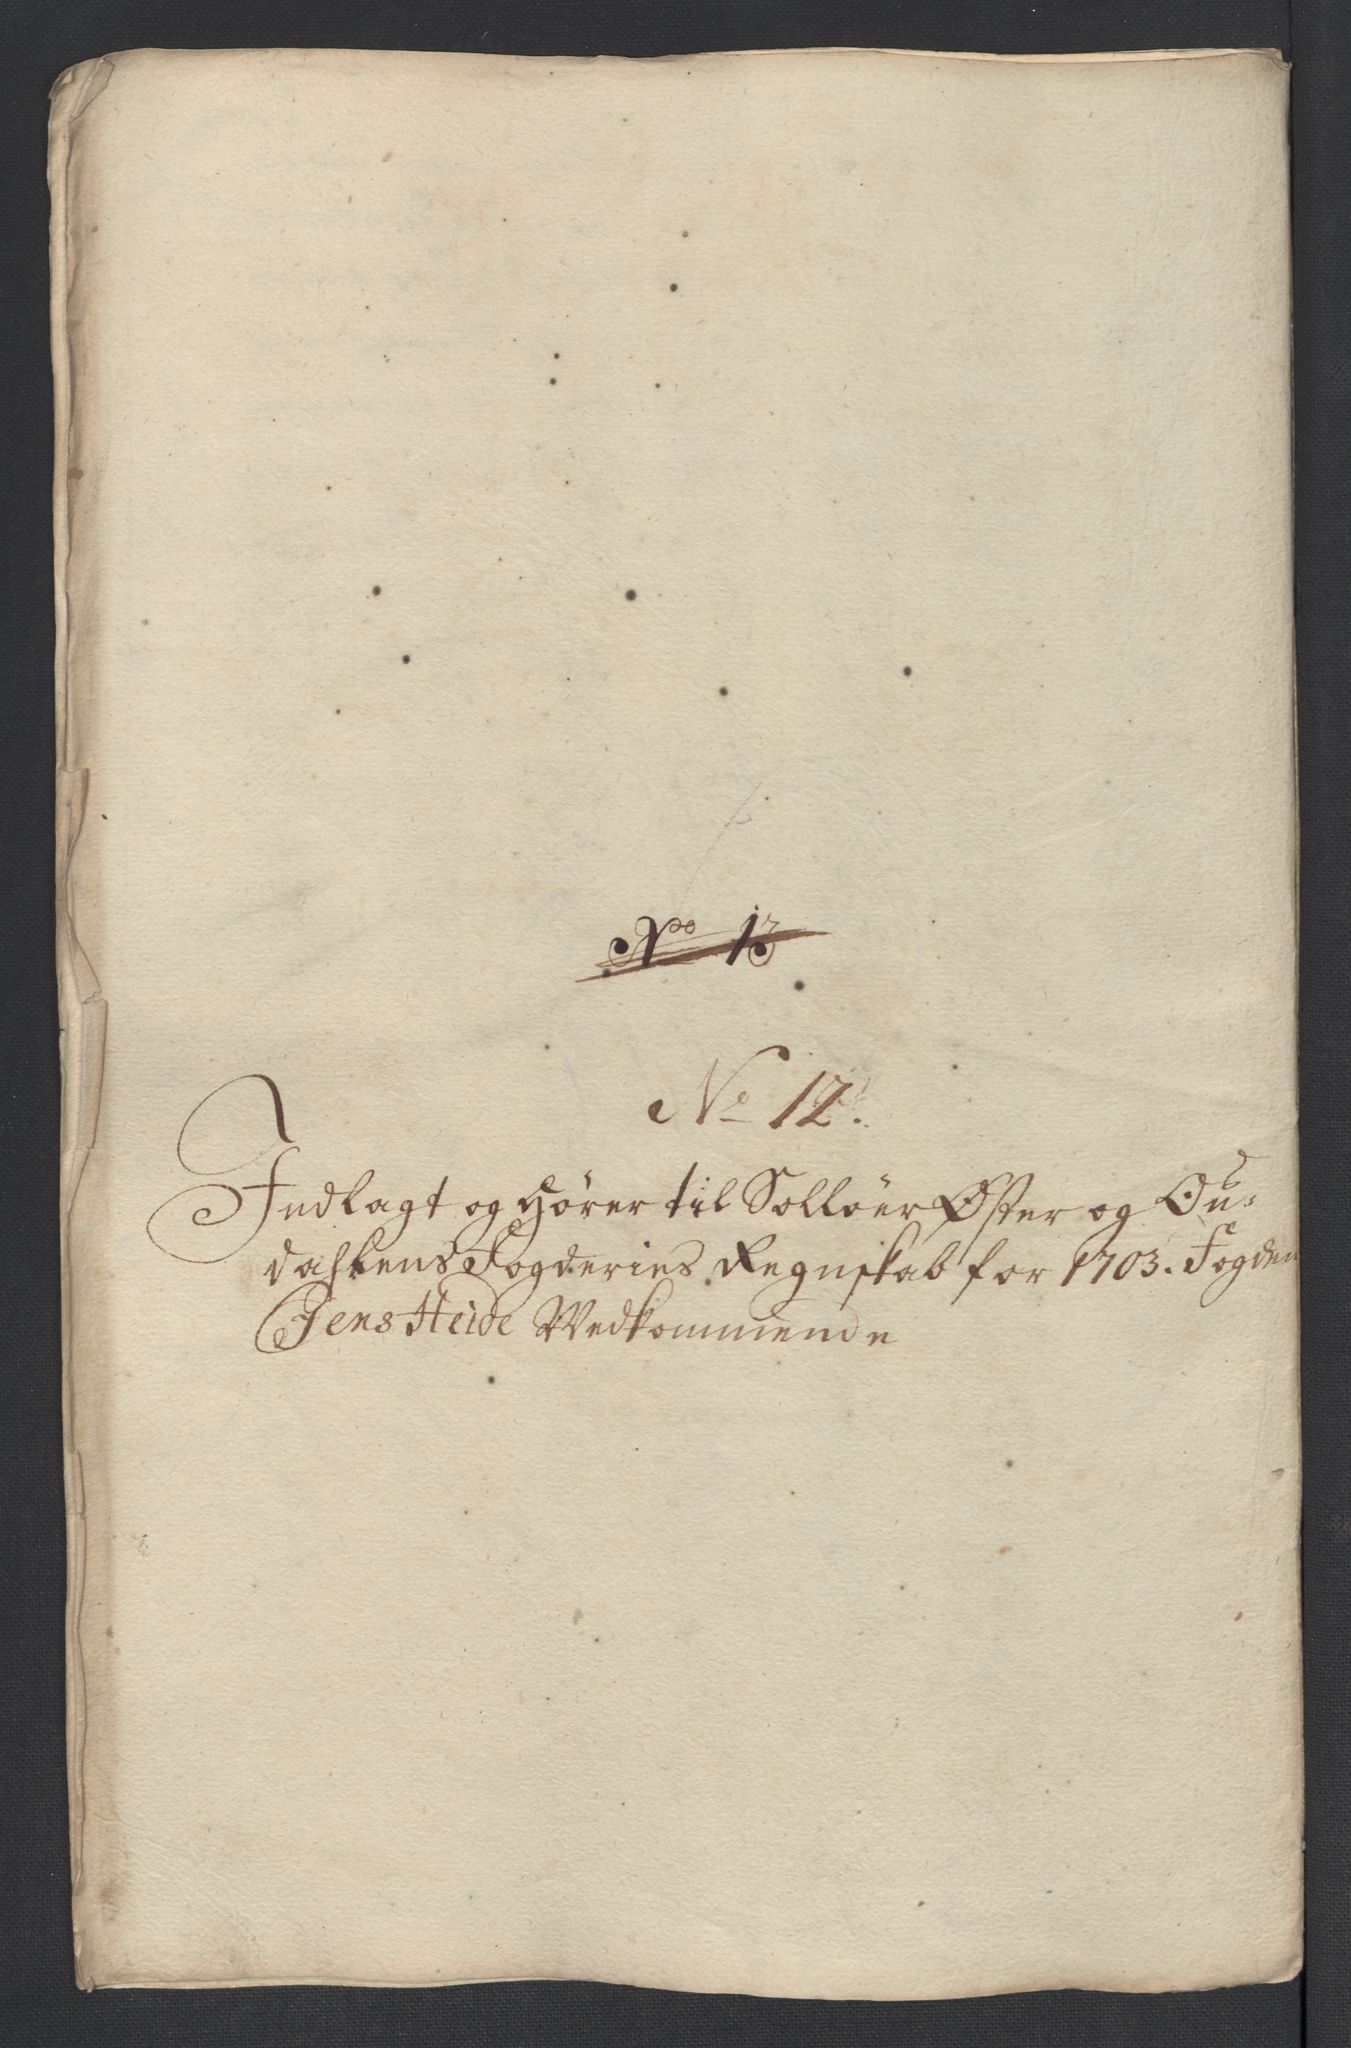 No 13
No 12.
Indlagt og Hører til Solløer Øster og Ou-
dahlens Fogderies Regnskab for 1703. Fogden
Jens Heide Vedkommende